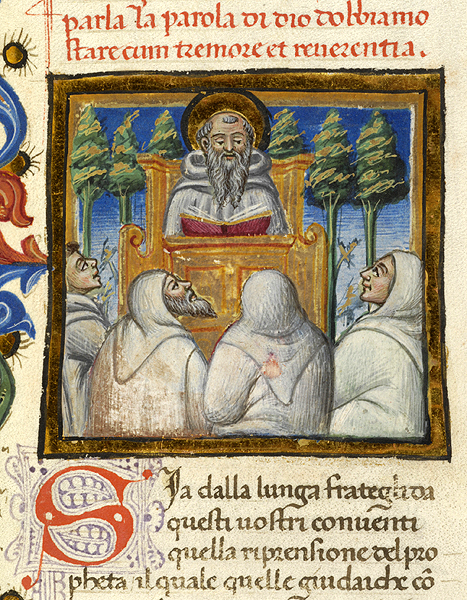 parla la parola di dio dobbiamo
stare cum tremore et reuerentia.
Sia dalla lunga frateglida
questi uostri conuenti
quella riprensione del pro
pheta il quale quelle giudaiche cō